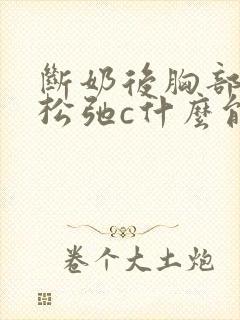 斷奶後胸部
松弛c什麼
卷个大土炮